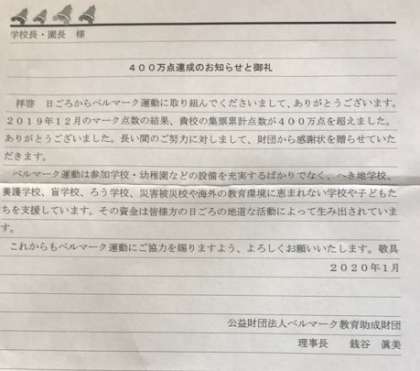 学校長・園長　様
４００万点達成のお知らせと御礼
拝啓　日ごろからベルマーク運動に取り組んでくださいまして、ありがとうございます。
２０１９年１２月のマーク点数の結果、貴校の集票累計点数が４００万点を超えました。
ありがとうございました。長い間のご努力に対しまして、財団から感謝状を贈らせていた
だきます。
ベルマーク運動は参加学校・幼稚園などの設備を充実するばかりでなく、へき地学校、
養護学校、盲学校、ろう学校、災害被災校や海外の教育環境に恵まれない学校や子どもた
ちを支援しています。その資金は皆様方の日ごろの地道な活動によって生み出されていま
す。
これからもベルマーク運動にご協力を賜りますよう、よろしくお願いいたします。敬具
２０２０年１月
公益財団法人ベルマーク教育助成財団
理事長　　銭谷　眞美